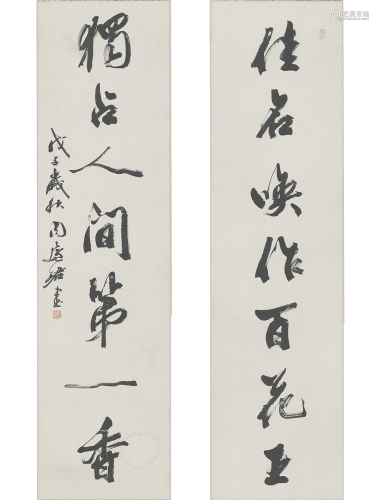 佳名喚作百花王
獨占人間第一香
戊子歲秋周慶召書